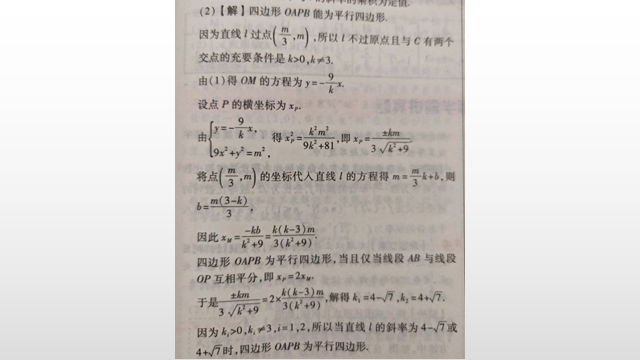 的斜率的乘积为定值.
(2)【解】四边形 OAPB 能为平行四边形.
因为直线 l 过点(m/3,m),所以 l 不过原点且与 C 有两个
交点的充要条件是 k>0,k≠3.
由(1)得 OM 的方程为 y=-9/k x.
设点 P 的横坐标为 x_P.
由{y=-9/k x, 9x²+y²=m², 得 x_P²=k²m²/(9k²+81),即 x_P=±km/(3√(k²+9)).
将点(m/3,m)的坐标代入直线 l 的方程得 m=m/3 k+b,则
b=m(3-k)/3,
因此 x_M=-kb/(k²+9)=k(k-3)m/(3(k²+9)).
四边形 OAPB 为平行四边形,当且仅当线段 AB 与线段
OP 互相平分,即 x_P=2x_M.
于是 ±km/(3√(k²+9))=2×k(k-3)m/(3(k²+9)),解得 k₁=4-√7,k₂=4+√7.
因为 k_i>0,k_i≠3,i=1,2,所以当直线 l 的斜率为 4-√7 或
4+√7时,四边形 OAPB 为平行四边形.